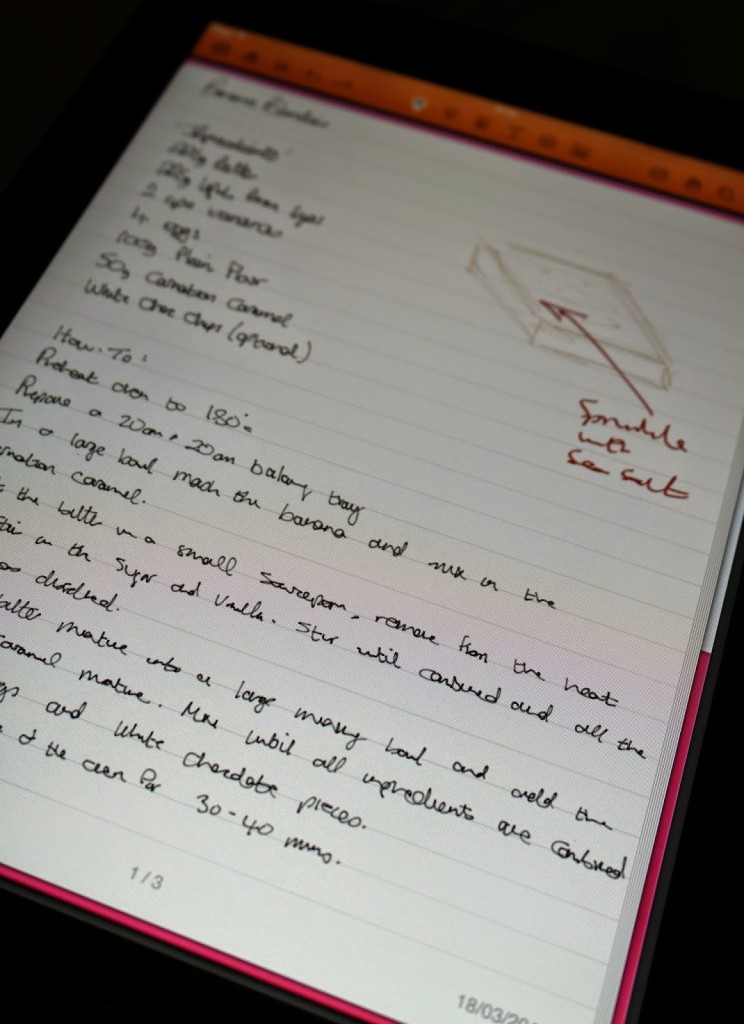 Ingredients:
Butter
Light Brown Sugar
2 ripe bananas
4 eggs
100g Plain Flour
50g Carnation Caramel
White Choc Chips (optional)
How-To:
Preheat oven to 180°c
Prepare a 20cm x 20cm baking tray
In a large bowl mash the banana and mix in the
caramel.
the butter in a small saucepan, remove from the heat
in the sugar and vanilla. Stir until combined and all the
dissolved.
butter mixture into a large mixing bowl and add the
caramel mixture. Mix until all ingredients are combined
and white chocolate pieces.
of the oven for 30-40 mins.
Sprinkle
with
Sea salt
1/3
18/03/20